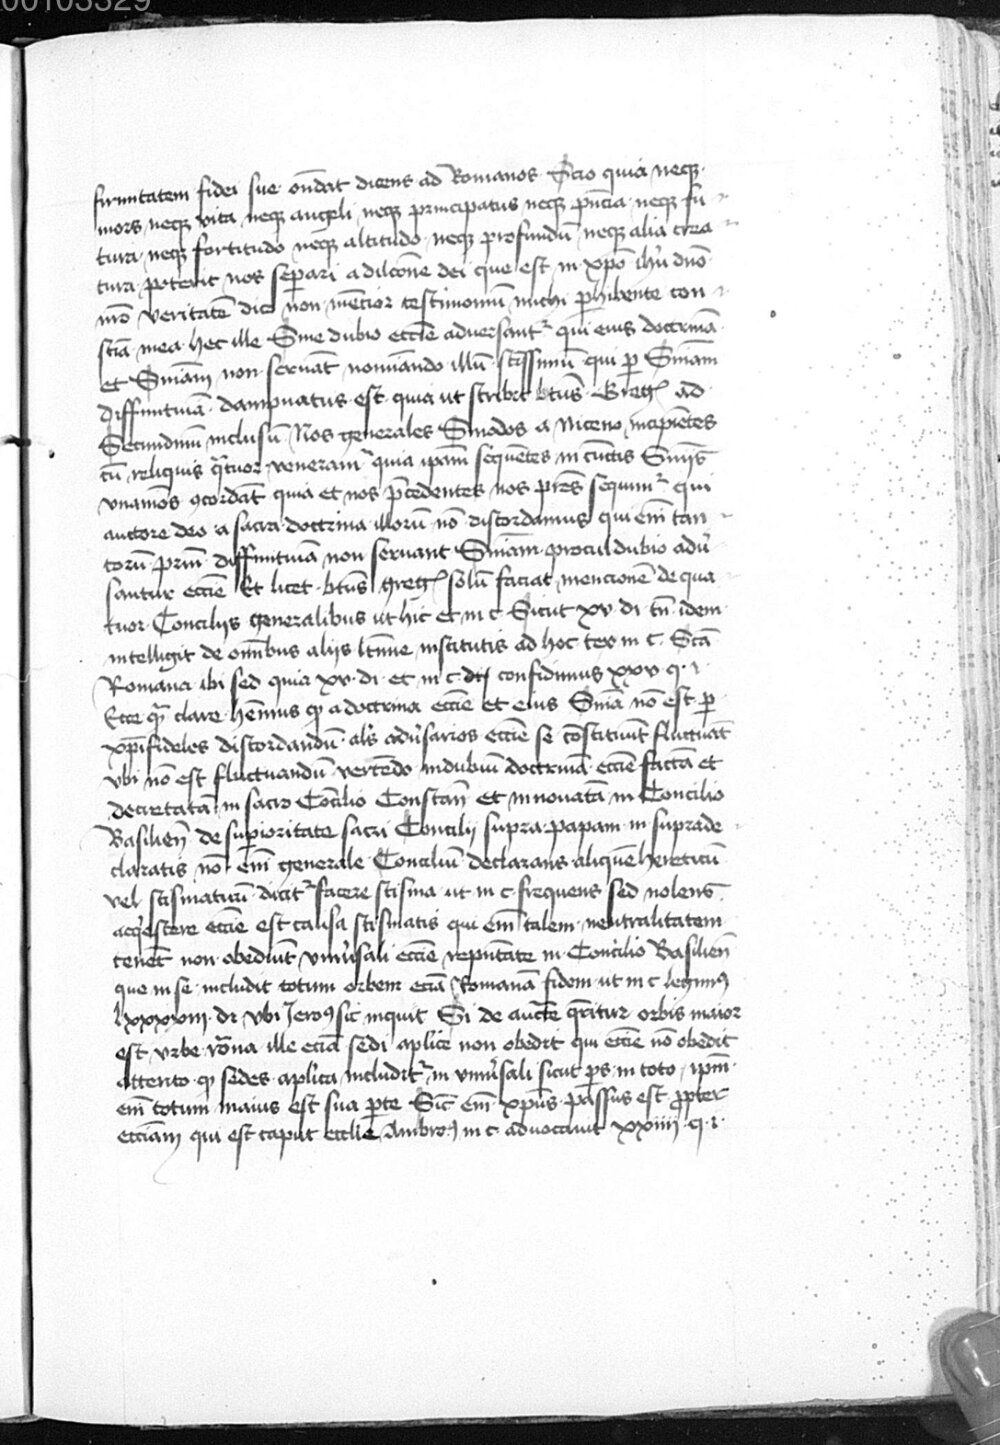 00103329
firmitatem fidei sue on̄dit dicens ad Romanos Scio quia neqȝ
mors neqȝ vita neqȝ angeli neqȝ principatus neqȝ pn̄cia neqȝ fu
tura neqȝ fortitudo neqȝ altitudo neqȝ profundū neqȝ alia crea
tura poterit nos sep̄ari a dilcōne dei que est in xp̄o ih̄u dn̄o
nr̄o veritatē dico non mēcior testimoniū michi p̄hibente con
sciā mea hec ille Sine dubio eccl̄ie adversant̄ qui eius doctrinā
et Sn̄iam non servāt nominando illū scīssimū qui p̄ Sn̄iam
diffinitivā dampnatus est quia ut scribit bt̄us Greḡ ad
Secundinū inclusū Nos generales Sinodos a Niceno incipiētes
cū reliquis q̄tuor veneram̄ quia ip̄am seq̄uētes in cūctis Sn̄iis
vnamōs ꝯcordāt quia et nos p̄cedentes nos pr̄es sequim̄ qui
auctore deo a sacra doctrina illorū nō discordamus qui em̄ tan
torū pr̄m diffinitivā non servant Sn̄iam procul dubio adv̄
santur eccl̄ie Et licet bt̄us Greḡ solū faciat mencionē de qua
tuor Conciliis generalibus ut hic et in c Sicut xv di tn̄ idem
intelligit de om̄ibus aliis ltīme institutis ad hoc tex in c Scā
Romana ibi sed quia xv di et in c confidimus xxv q 1
Ecce q̄ clare hēmus ꝙ a doctrina eccl̄ie et eius Sn̄ia nō est p̄
xp̄ifideles discordandū als̄ adv̄sarios eccl̄ie se cōstituūt fluctuāt
vbi nō est fluctuandū vertēdo in dubiū doctrinā eccl̄ie factā et
decretatā in sacro Cōcilio Constan̄ et innovatā in Concilio
Basilien̄ de sup̄ioritate sacri Concilii supra papam in suprade
claratis nō em̄ generale Conciliū declarans aliquē hereticū
vel scismaticū dicit̄ facere scisma ut in c frequens sed nolens
acq̄escere eccl̄ie est causa scismatis qui em̄ talem neutralitatem
tenēt non obediūt vniv̄sali eccl̄ie rep̄ntate in Concilio Basilien̄
que in se includit totum orbem eciā Romanā fidem ut in c legimꝰ
lxxxxiii di vbi Jeroꝰ sic inquit Si de aucte q̄ritur orbis maior
est vrbe rōna ille eciā sedi aplice non obedit qui eccl̄ie nō obedit
attento ꝙ sedes aplica includit̄ in vniv̄sali sicut p̄s in toto ip̄m
em̄ totum maius est sua p̄te Sic em̄ xp̄us passus est propter
eccl̄iam qui est caput eccl̄ie Ambroꝰ in c advocavit xxiiii q 1